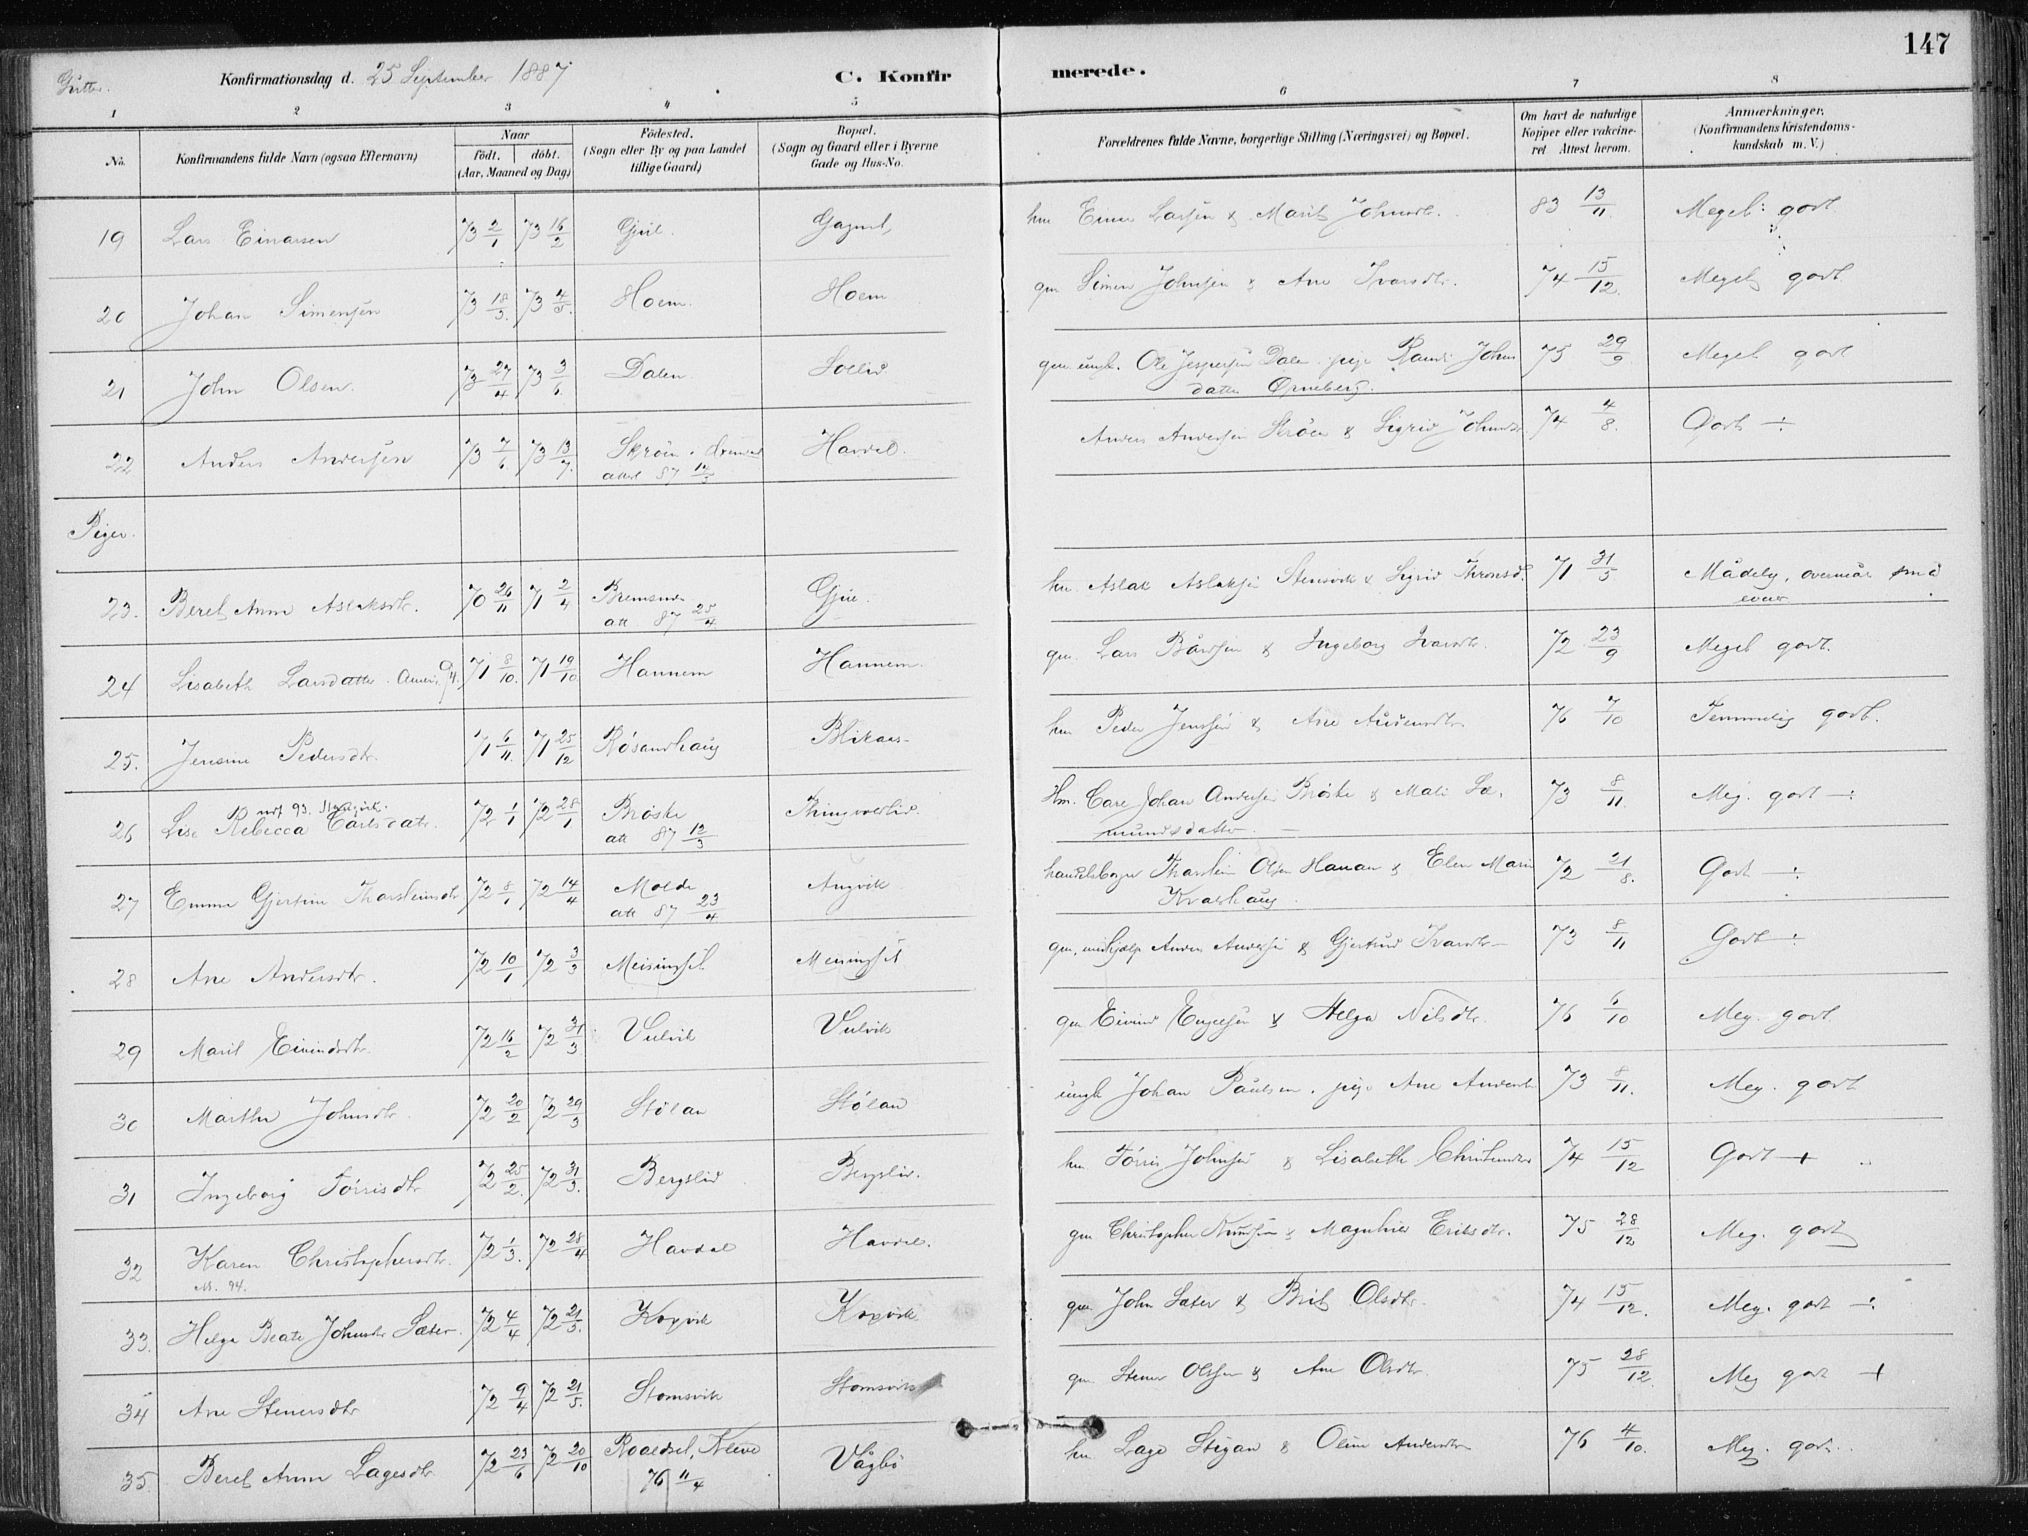 147
Gutter. Konfirmationsdag d. 25 September 1887 C. Konfirmerede.
1 2 3 4 5 6 7 8
No. Konfirmandens fulde Navn (ogsaa Efternavn) Naar födt. döbt. (Aar, Maaned og Dag) Födested. (Sogn eller By og paa Landet tillige Gaard) Bopæl. (Sogn og Gaard eller i Byerne Gade og Hus-No. Forældrenes fulde Navne, borgerlige Stilling (Næringsvei) og Bopæl. Om havt de naturlige Kopper eller vakcineret Attest herom. Anmærkninger. (Konfirmandens Kristendomskundskab m. V.)
19 Lars Einarsen 73 2/1 73 16/2 hm Einar Larsen & Marit Johnsdtr. 83 13/11. Meget godt
20 Johan Simensen 73 18/3. 73 4/5. Hoem. Hoem gm. Simen Johnsen & Ane Ivarsdtr. 74 15/12. Meget godt
21 John Olsen. 73 27/4 73 3/6. Dalen Sollid gm. ungk. Ole Jespersen Dalen pige Randi Johns 75 29/9 Meget godt
datter Ørneberg.
22 Anders Andersen 73 7/6. 73 13/7. Havdal. Anders Andersen Skrøen & Sigrid Johnsdtr 74 4/8. Godt ÷
attest 87 12/3
Piger.
23. Beret Anna Aslaksdtr. 70 26/11 71 2/4 Bremsnes hm. Aslak Aslaksen Stensvik & Sigrid Thronsd. 71 31/5 Mådelig, små
att 87 25/4. evner
24 Lisabeth Larsdatter. 71 8/10. 71 19/10. Hannem Hannem. gm. Lars Bårdsen & Ingeborg Ivarsdtr. 72 23/9 Meget godt.
25. Jensine Pedersdtr. 71 6/11. 71 25/12 Røsandhaug Blikaas hm Peder Jensen & Ane Audensdtr 76 7/10 Temmelig godt.
26 Lise Rebecca Carlsdatr. 72 1/1 72 28/1 Brøske Thingvoldlid. Hm. Carl Johan Andersen Brøske & Mali Sæ- 73 8/11. Meg. godt ÷
att 87 12/3 mundsdatter.
27 Emma Gjertine Thorsteinsdtr 72 8/1 72 14/4 Molde Angvik Thorstein Olsen Hanan & Elen Marie 72 21/8. Godt ÷
att 87 23/4 Kvalshaug
28 Ane Andersdtr. 72 10/1 72 3/3 Meisingset Meisingset gm. Anders Andersen & Gjertrud Ivarsdtr 73 8/11 Godt ÷
29 Marit Eivindsdtr. 72 16/2 72 31/3 Vulvik Vulvik gm Eivind Engelsen & Helga Nilsdtr. 76 6/10 Meg. godt
30 Martha Johnsdtr. 72 20/2 72 29/3 Stølan Stølan ungk Johan Paulsen. pige Ane Andersdt 73 8/11. Meg. godt
31 Ingeborg Tørrisdtr 72 25/2. 72 31/3. Bergslid Bergslid. hm. Tørris Johnsen & Lisabeth 74 15/12 Godt +
32 Karen Christophersdtr. 72 1/3. 72 28/4 Havdal Havdal. gm Christopher Knudsen & Magnhild Eriksdtr. 75 28/12 Meg. godt
33. Helga Beate Johnsdtr Sæter. 72 4/4 72 21/5. Koxvik Koxvik gm John Sæter & Brit Olsdtr. 74 15/12. Meg. godt ÷
34 Ane Stenersdtr 72 9/4 72 21/5. Stomsvik Stomsvik gm. Stener Olsen & Ane Olsdtr. 75 28/12. Meg godt +
35. Beret Anna Lagesdtr. 72 23/6 72 20/10 Roaldset, Kleive Vågbø hm Lage Stigan & Oline Andersdtr 76 4/10. Meg. godt.
76 11/4